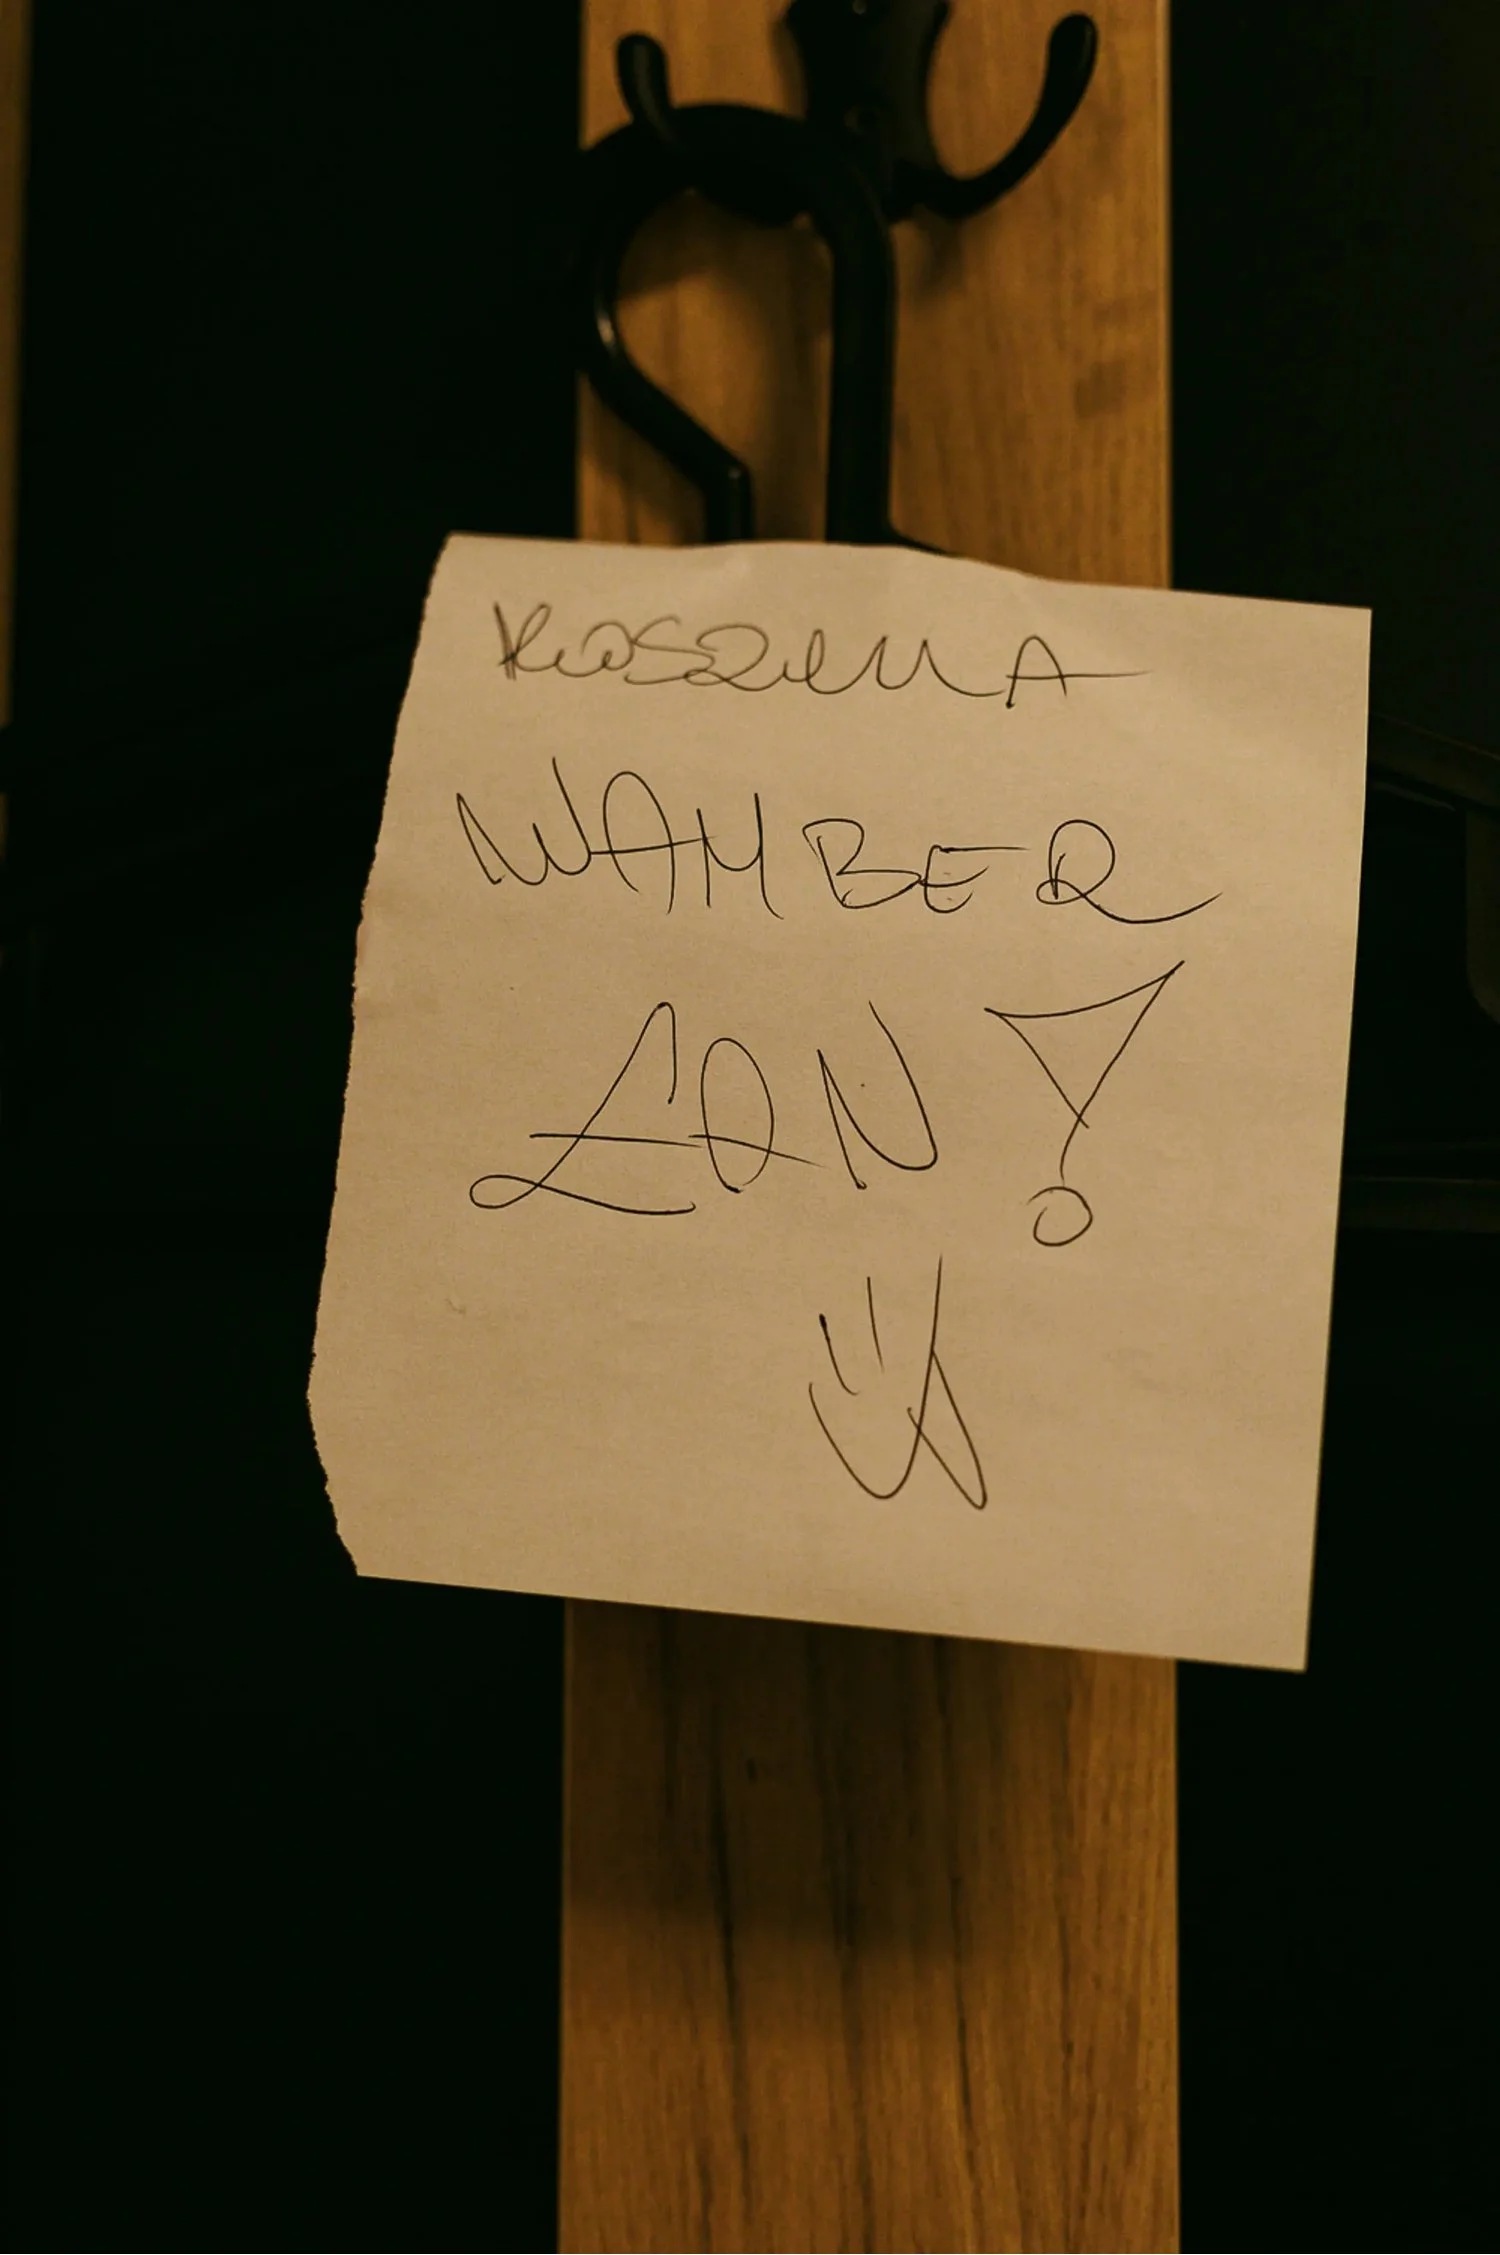 KOSZULA
WAMBER
ŁAN!